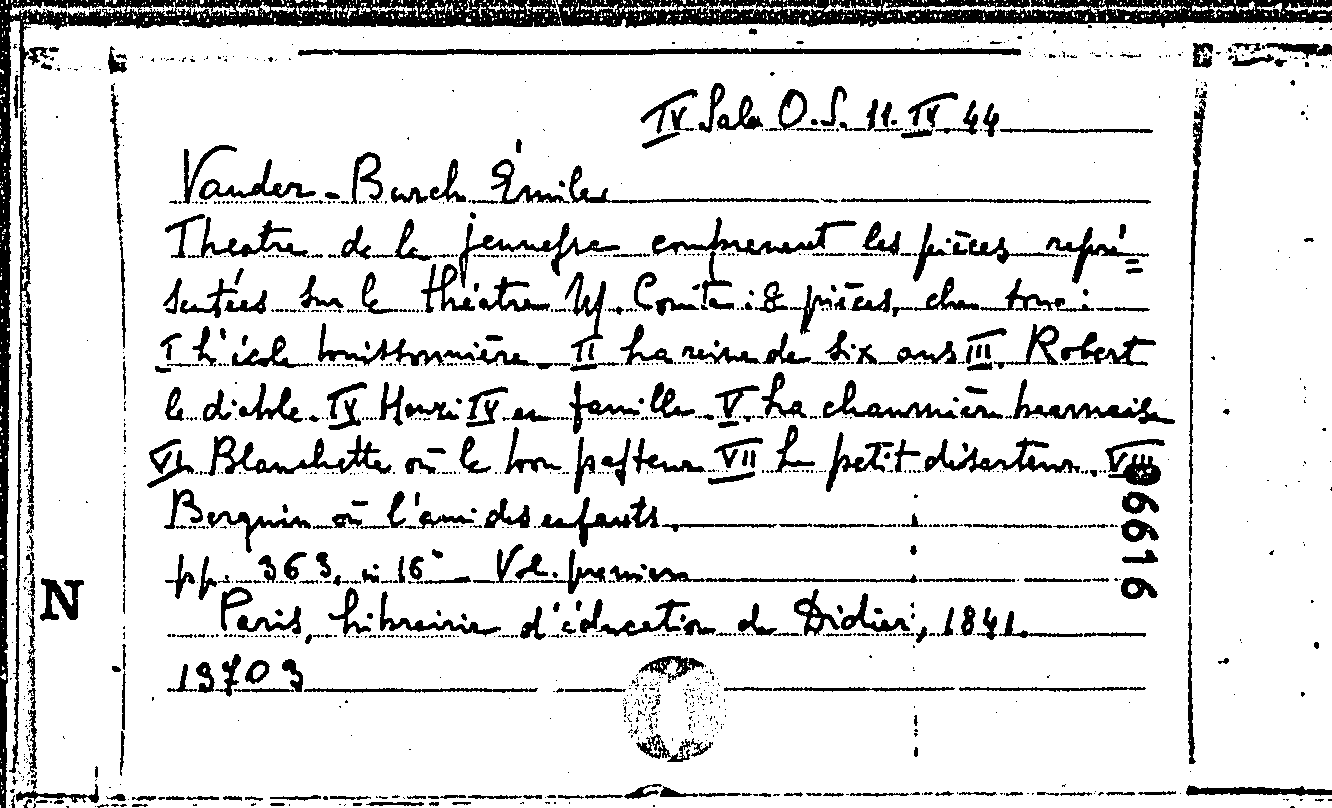 IV Sala O.S. 11. IV. 44
Vander-Burch Émile
Theatre de la jeunesse comprenent les pièces repré=
sentées sur le théatre M. Comte: 8 pièces,
I L'école buissonnière. II La reine de six ans III. Robert
le diable. IV Henri IV en famille. V. La chaumière bearnaise
VI. Blanchette où le bon pasteur VII Le petit déserteur. VIII
Berquin où l'ami des enfants.
pp. 363. in 16° - Vol. premier
Paris, Librairie d'éducation de Didier, 1841.
19703
N
96616